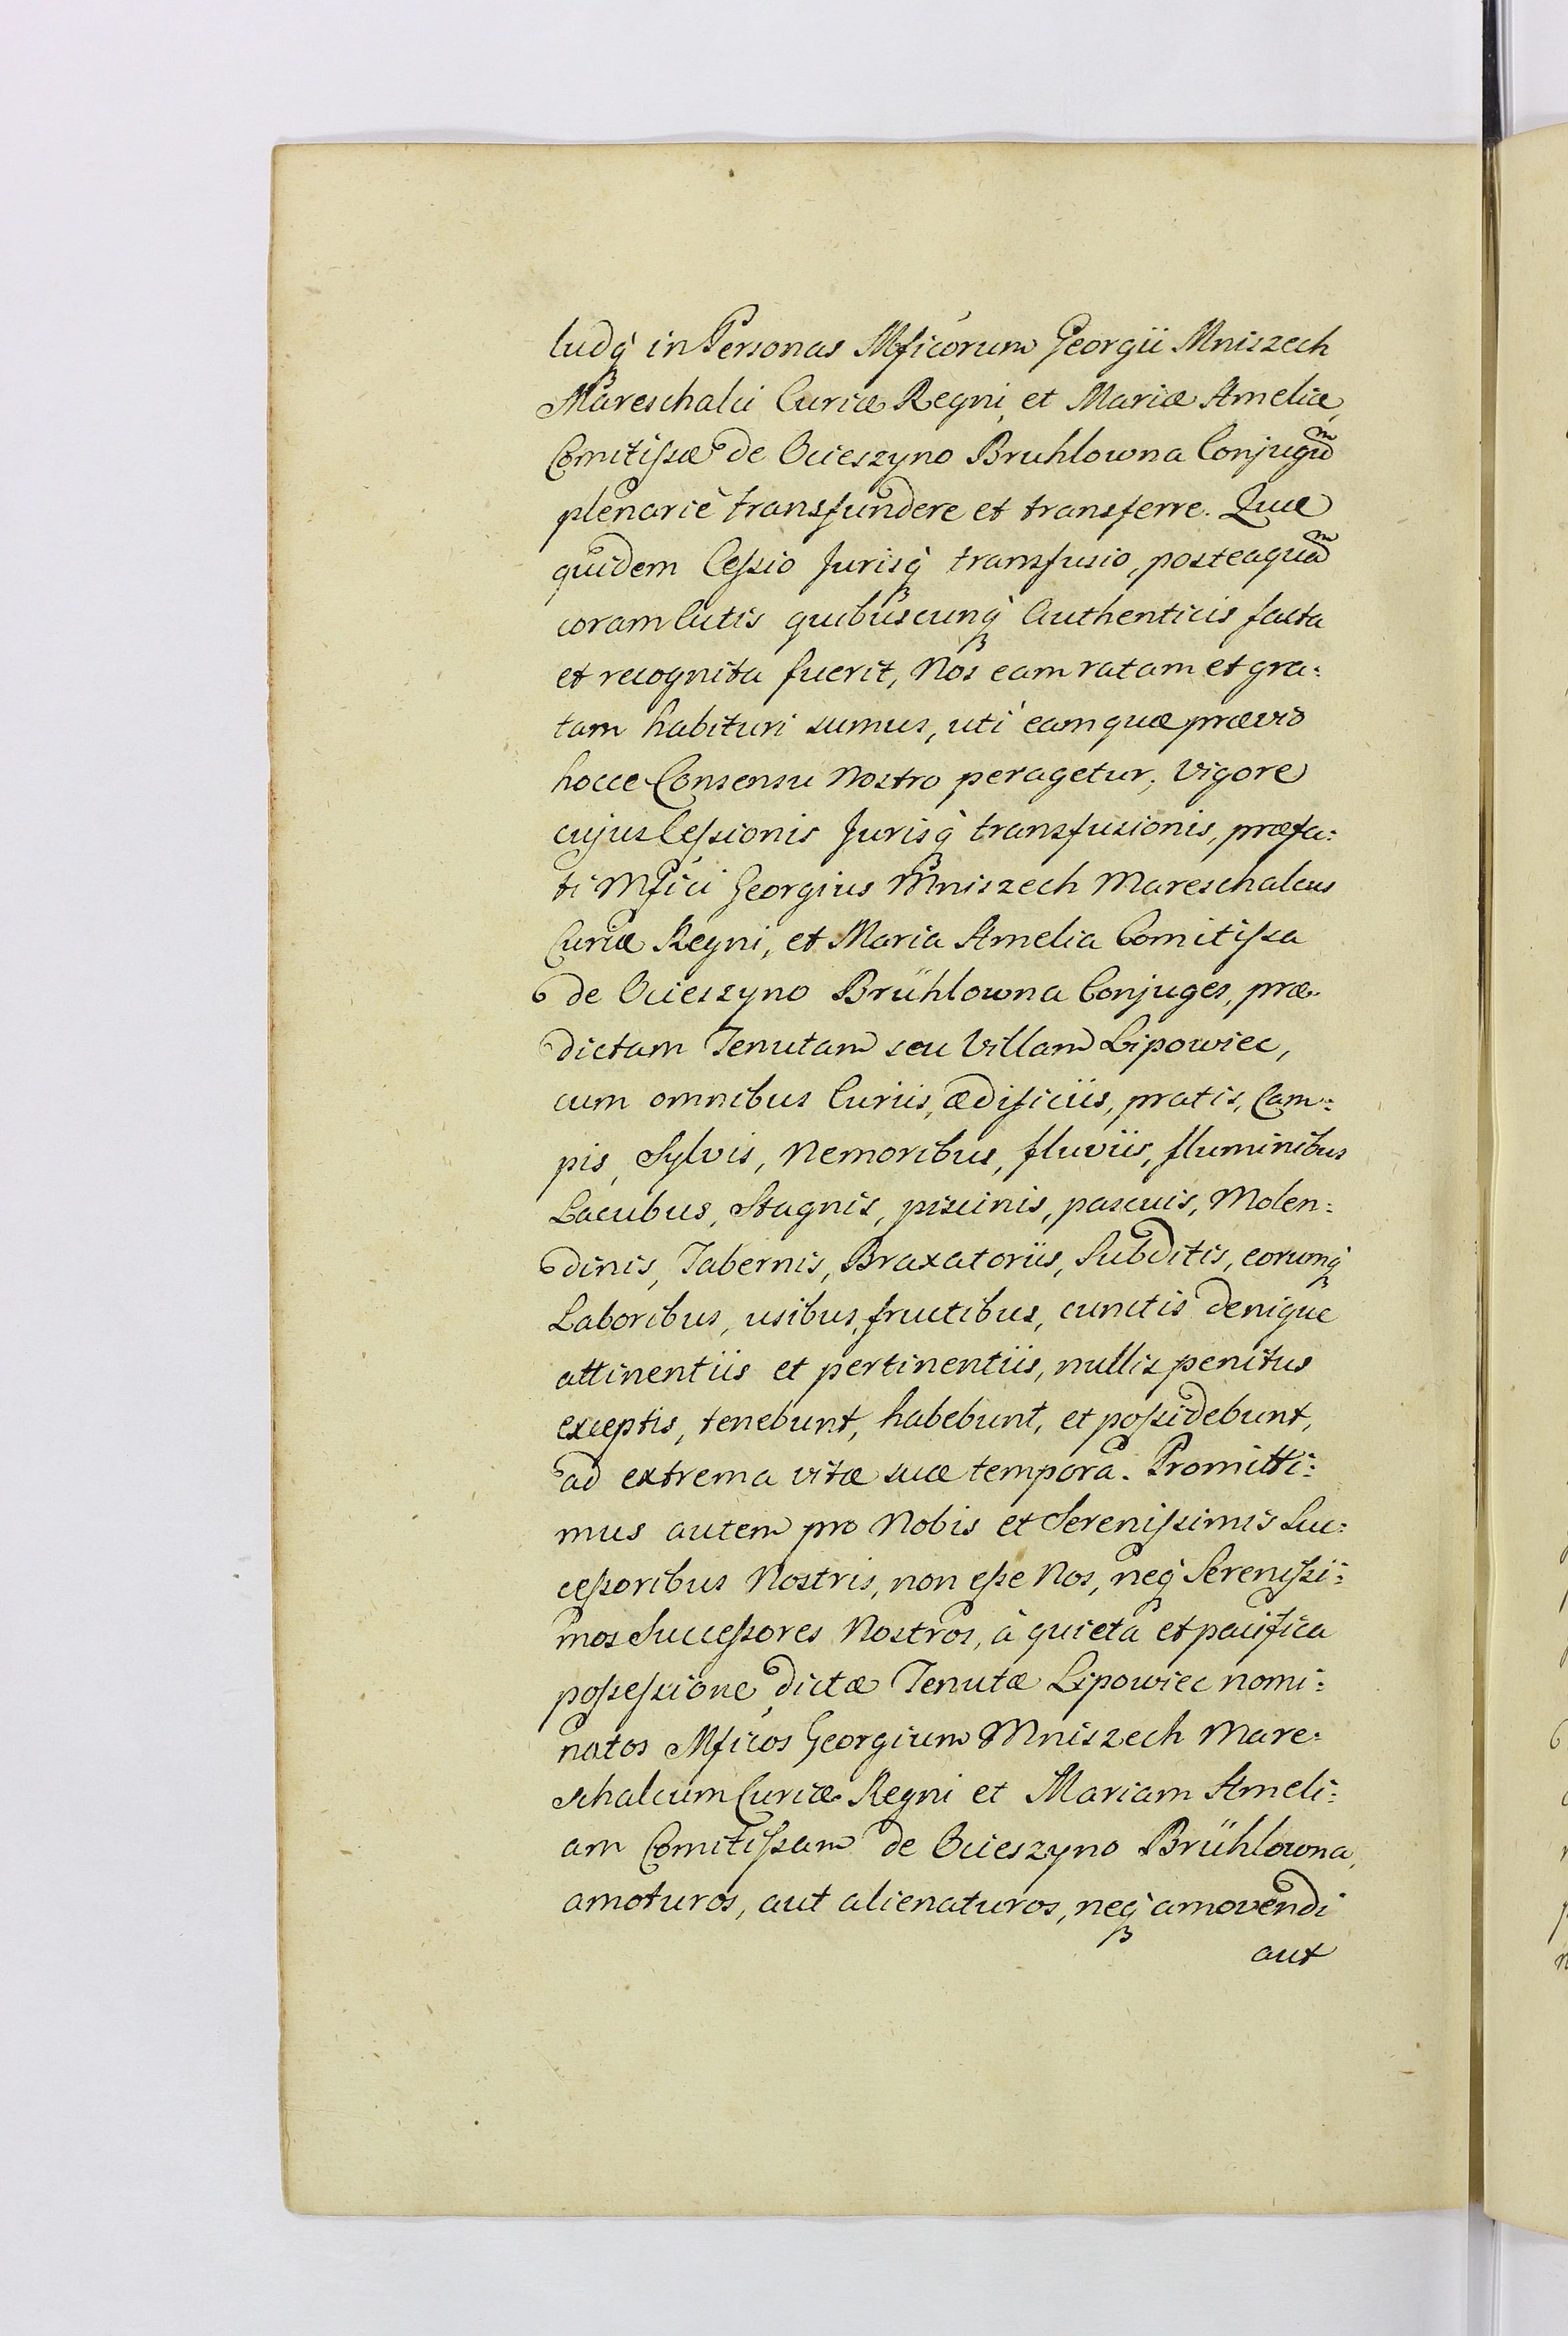 ludq́ in Personas Mficorum Georgii Mniszech
Mareschalci Curiæ Regni, et Mariæ Ameliæ,
Comitißæ de Ocieszyno Bruhlowna Conjugum
plenariè transfundere et transferre. Quæ
quidem Ceßio Jurisq́ transfusio, posteaquam
coram Actis quibuscunq́ Authenticis facta
et recognita fuerit, Nos eam ratam et gra:
tam habituri sumus, uti eam quæ prævio
hocce Consensu Nostro peragetur, Vigore
cujus Ceßionis Jurisq́ transfusionis, præfa:
ti Mfici Georgius Mniszech Mareschalcus
Curiæ Regni, et Maria Amelia Comitißa
de Ocieszyno Brühlowna Conjuges, præ
dictam Tenutam seu Villam Lipowiec,
cum omnibus Curiis, ædificiis, pratis, Cam:
pis, Sylvis, Nemoribus, fluviis, fluminibus
Lacubus, Stagnis, piscinis, pascuis, Molen:
dinis, Tabernis, Braxatoriis, Subditis, eorumq́
Laboribus, usibus, fructibus, cunctis denique
attinentiis et pertinentiis, nullis penitus
exceptis, tenebunt, habebunt, et poßidebunt,
ad extrema vitæ suæ tempora. Promitti:
mus autem pro Nobis et Serenißimis Suc:
ceßoribus Nostris, non eße Nos, neq́ Serenißi:
mos Succeßores Nostros, à quieta et pacifica
poßeßione dictæ Tenutæ Lipowiec nomi:
natos Mficos Georgium Mniszech Mare:
schalcum Curiæ Regni et Mariam Ameli:
am Comitißam de Ocieszyno Brühlowna,
amoturos, aut alienaturos, neq́ amovendi
aut